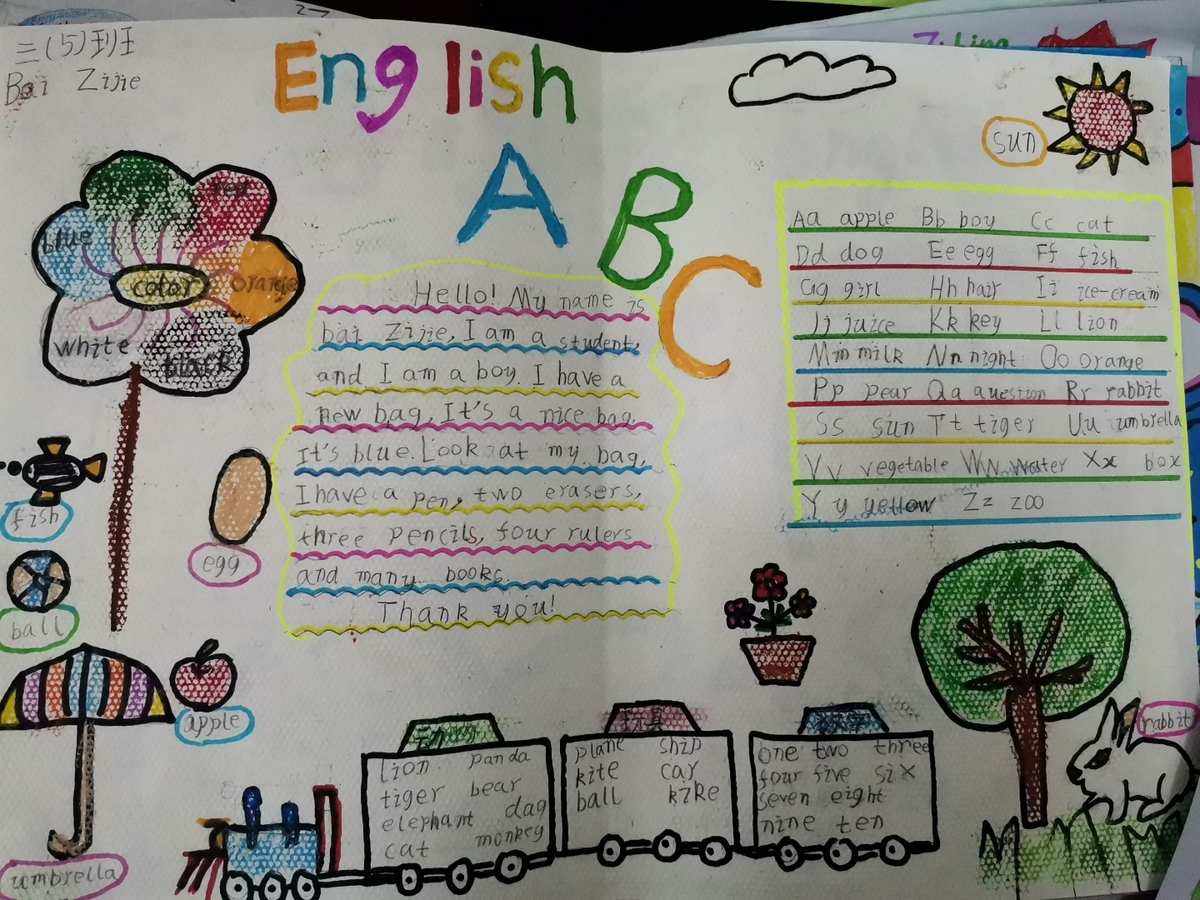 三(5)班
Bai Zijie
English
A B C
Zi
sun
red
blue
orange
color
white
black
Hello! My name is
bai Zijie, I am a student,
and I am a boy. I have a
new bag, It's a nice bag.
It's blue. Look at my bag,
I have a pen, two erasers,
three pencils, four rulers
and many books.
Thank you!
Aa apple Bb boy Cc cat
Dd dog Ee egg Ff fish
Gg girl Hh hair Ii ice-cream
Jj juice Kk key Ll lion
Mm milk Nn night Oo orange
Pp pear Qq question Rr rabbit
Ss sun Tt tiger Uu umbrella
Vv vegetable Ww water Xx box
Yy yellow Zz zoo
fish
egg
ball
apple
umbrella
rabbit
动物
lion panda
tiger bear
elephant dag
cat monkey
玩具
plane ship
kite car
ball kike
数字
one two three
four five six
seven eight
nine ten